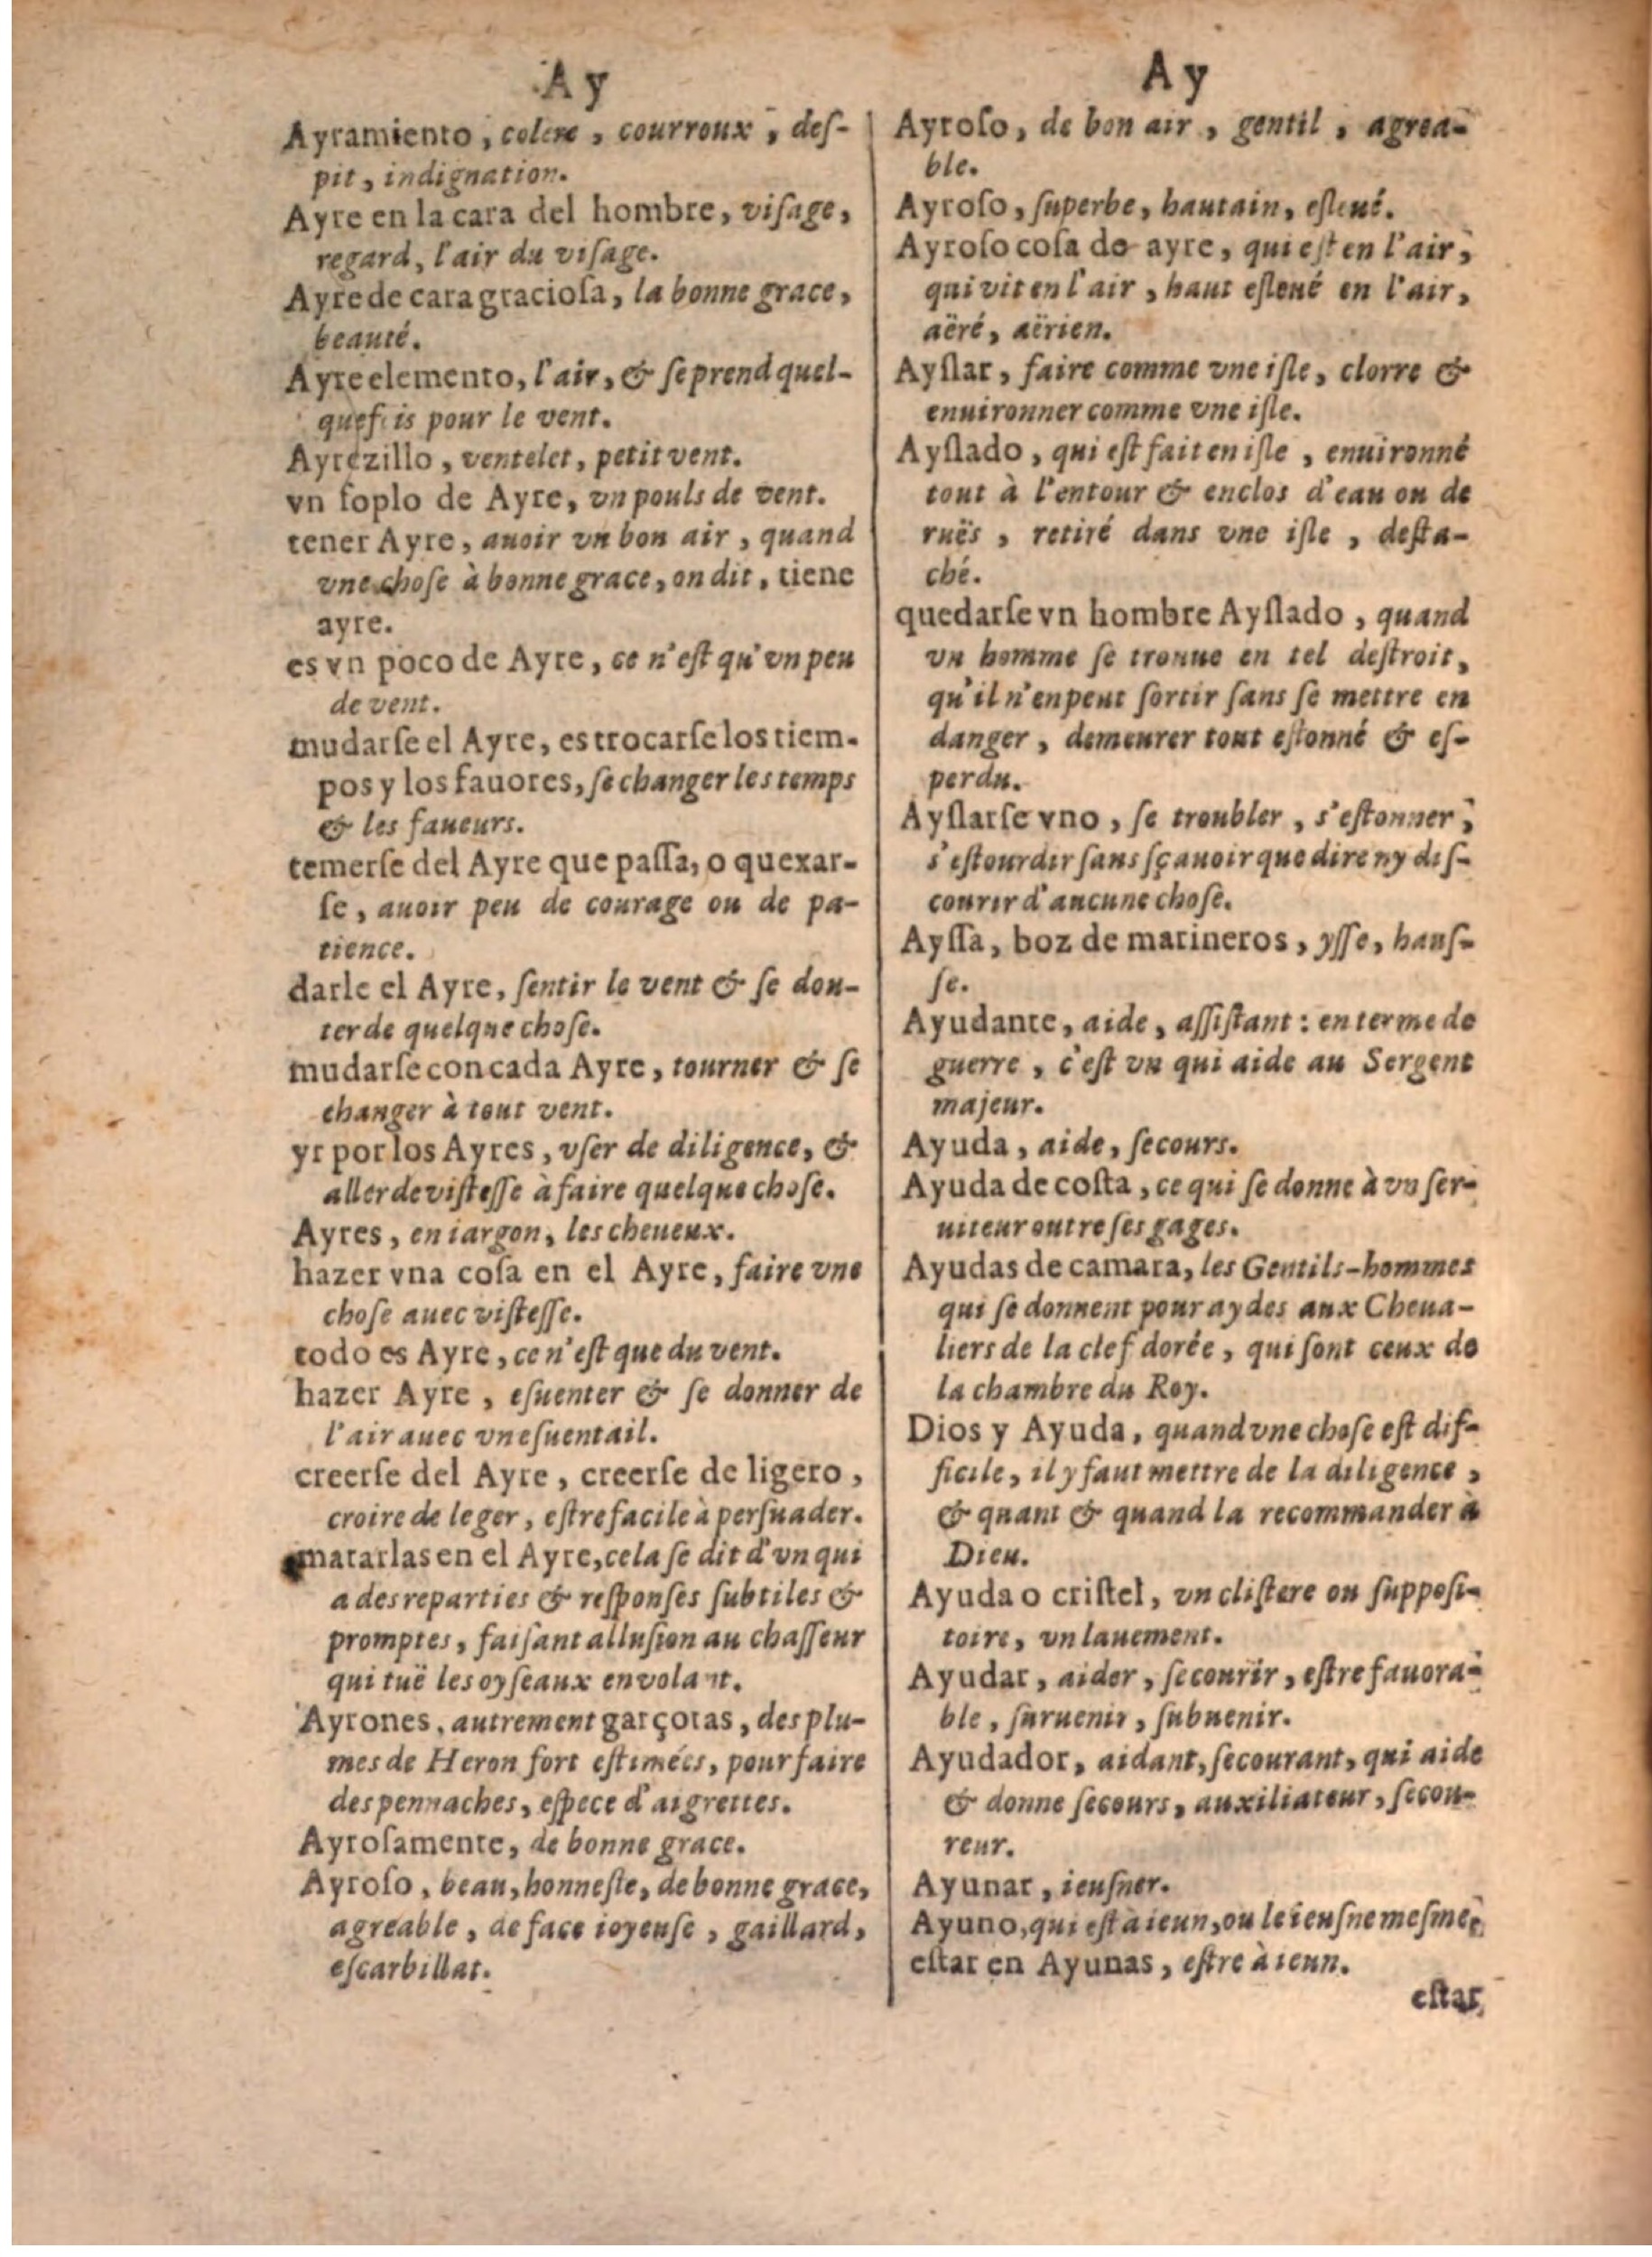 Ay
Ayramiento, colere, courroux, deſ-
pit, indignation.
Ayre en la cara del hombre, viſage,
regard, l'air du viſage.
Ayre de cara gracioſa, la bonne grace,
beauté.
Ayre elemento, l'air, & ſe prend quel-
quefois pour le vent.
Ayrezillo, ventelet, petit vent.
vn ſoplo de Ayre, vn pouls de vent.
tener Ayre, auoir vn bon air, quand
vne choſe à bonne grace, on dit, tiene
ayre.
es vn poco de Ayre, ce n'eſt qu'vn peu
de vent.
mudarſe el Ayre, es trocarſe los tiem-
pos y los fauores, ſe changer les temps
& les faueurs.
temerſe del Ayre que paſſa, o quexar-
ſe, auoir peu de courage ou de pa-
tience.
darle el Ayre, ſentir le vent & ſe dou-
ter de quelque choſe.
mudarſe con cada Ayre, tourner & ſe
changer à tout vent.
yr por los Ayres, vſer de diligence, &
aller de viſteſſe à faire quelque choſe.
Ayres, en iargon, les cheueux.
hazer vna coſa en el Ayre, faire vne
choſe auec viſteſſe.
todo es Ayre, ce n'eſt que du vent.
hazer Ayre, eſuenter & ſe donner de
l'air auec vn eſuentail.
creerſe del Ayre, creerſe de ligero,
croire de leger, eſtre facile à perſuader.
matarlas en el Ayre, cela ſe dit d'vn qui
a des reparties & reſponſes ſubtiles &
promptes, faiſant alluſion au chaſſeur
qui tuë les oyſeaux en volant.
Ayrones, autrement garçotas, des plu-
mes de Heron fort eſtimées, pour faire
des pennaches, eſpece d'aigrettes.
Ayroſamente, de bonne grace.
Ayroſo, beau, honneſte, de bonne grace,
agreable, de face ioyeuſe, gaillard,
eſcarbillat.
Ay
Ayroſo, de bon air, gentil, agrea-
ble.
Ayroſo, ſuperbe, hautain, eſleué.
Ayroſo coſa de ayre, qui eſt en l'air,
qui vit en l'air, haut eſleué en l'air,
aëré, aërien.
Ayſlar, faire comme vne iſle, clorre &
enuironner comme vne iſle.
Ayſlado, qui eſt fait en iſle, enuironné
tout à l'entour & enclos d'eau ou de
ruës, retiré dans vne iſle, deſta-
ché.
quedarſe vn hombre Ayſlado, quand
vn homme ſe trouue en tel deſtroit,
qu'il n'en peut ſortir ſans ſe mettre en
danger, demeurer tout eſtonné & eſ-
perdu.
Ayſlarſe vno, ſe troubler, s'eſtonner,
s'eſtourdir ſans ſçauoir que dire ny diſ-
courir d'aucune choſe.
Ayſſa, boz de marineros, yſſe, hauſ-
ſe.
Ayudante, aide, aſſiſtant: en terme de
guerre, c'eſt vn qui aide au Sergent
majeur.
Ayuda, aide, ſecours.
Ayuda de coſta, ce qui ſe donne à vn ſer-
uiteur outre ſes gages.
Ayudas de camara, les Gentils-hommes
qui ſe donnent pour aydes aux Cheua-
liers de la clef dorée, qui ſont ceux de
la chambre du Roy.
Dios y Ayuda, quand vne choſe eſt dif-
ficile, il y faut mettre de la diligence,
& quant & quand la recommander à
Dieu.
Ayuda o criſtel, vn cliſtere ou ſuppoſi-
toire, vn lauement.
Ayudar, aider, ſecourir, eſtre fauora-
ble, ſuruenir, ſubuenir.
Ayudador, aidant, ſecourant, qui aide
& donne ſecours, auxiliateur, ſecou-
reur.
Ayunar, ieuſner.
Ayuno, qui eſt à ieun, ou le ieuſne meſme.
eſtar en Ayunas, eſtre à ieun.
eſtar